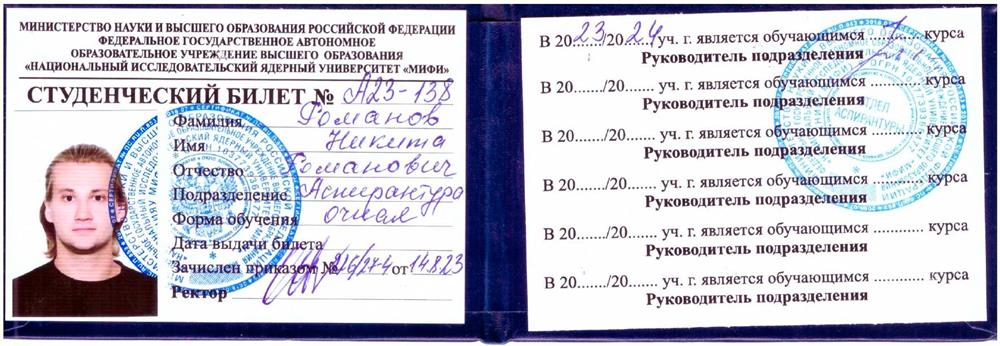 МИНИСТЕРСТВО НАУКИ И ВЫСШЕГО ОБРАЗОВАНИЯ РОССИЙСКОЙ ФЕДЕРАЦИИ
ФЕДЕРАЛЬНОЕ ГОСУДАРСТВЕННОЕ АВТОНОМНОЕ
ОБРАЗОВАТЕЛЬНОЕ УЧРЕЖДЕНИЕ ВЫСШЕГО ОБРАЗОВАНИЯ
«НАЦИОНАЛЬНЫЙ ИССЛЕДОВАТЕЛЬСКИЙ ЯДЕРНЫЙ УНИВЕРСИТЕТ «МИФИ»
СТУДЕНЧЕСКИЙ БИЛЕТ № А23-138
Фамилия Романов
Имя Никита
Отчество Романович
Подразделение Аспирантура
Форма обучения очная
Дата выдачи билета
Зачислен приказом № от 14.8.23
Ректор
В 2023/2024 уч. г. является обучающимся 1 курса
Руководитель подразделения
В 20......./20....... уч. г. является обучающимся ........... курса
Руководитель подразделения
ОТДЕЛ
АСПИРАНТУРЫ
В 20......./20....... уч. г. является обучающимся ........... курса
Руководитель подразделения
В 20......./20....... уч. г. является обучающимся ........... курса
Руководитель подразделения
В 20......./20....... уч. г. является обучающимся ........... курса
Руководитель подразделения
В 20......./20....... уч. г. является обучающимся ........... курса
Руководитель подразделения